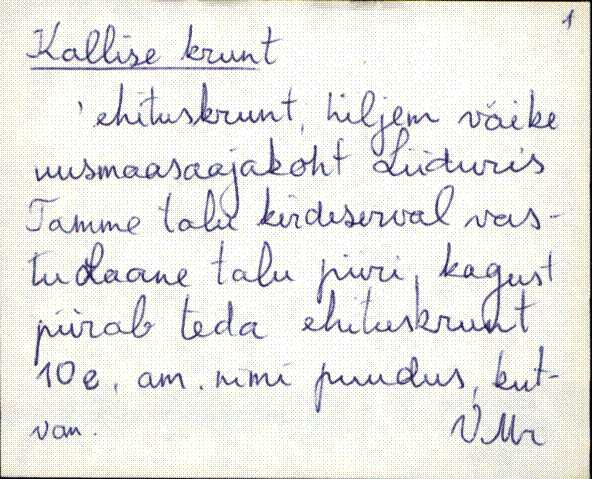 1
Kallise krunt
'ehituskrunt, hiljem väike
uusmaasaajakoht Liiduris
Tamme talu kirdeserval vas-
tu Laane talu piiri, kagust
piirab teda ehituskrunt
10e. am. nimi puudus, kut-
van. VMr